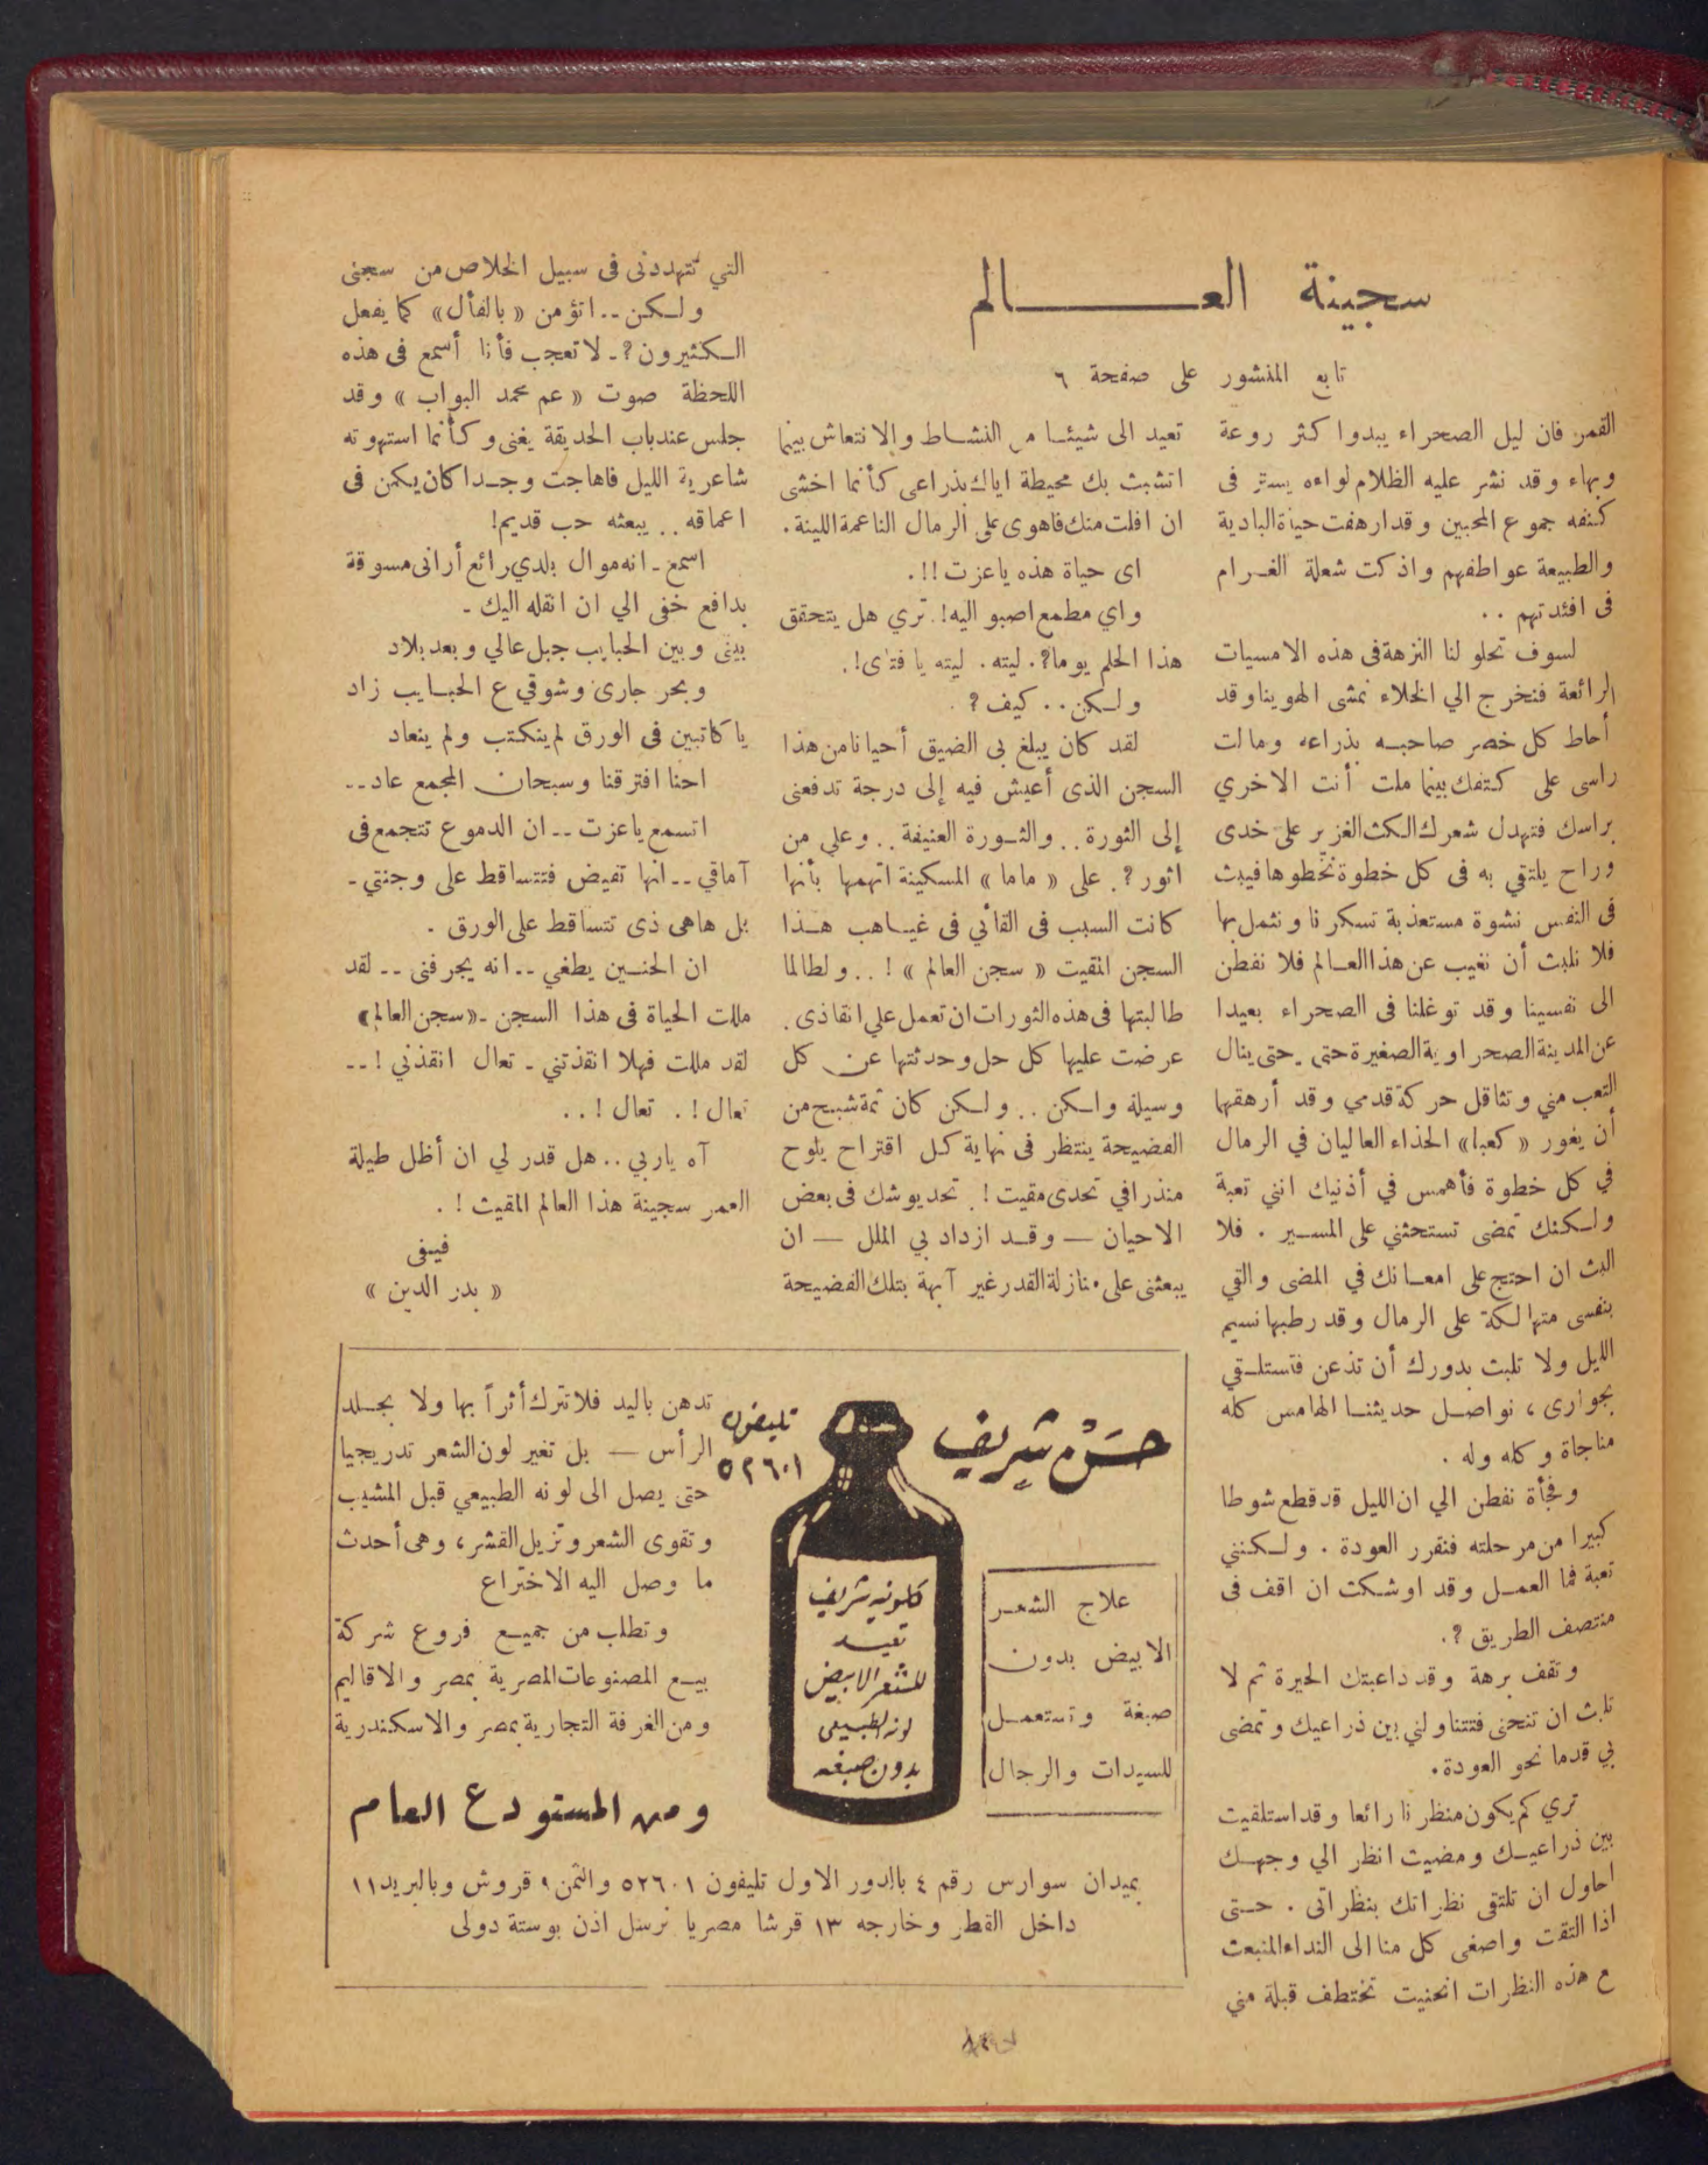 سجينة العـــــــالم
تابع المنشور على صفحة ٦
القمر فان ليل الصحراء يبدوا كثر روعة
وبهاء وقد نشر عليه الظلام لواءه يستر فى
كنفه جموع المحبين وقد ارهفت حياة البادية
والطبيعة عواطفهم واذكت شعلة الغـرام
فى افئدتهم ..
لسوف تحلو لنا النزهة فى هذه الامسيات
الرائعة فنخرج الي الخلاء نمشى الهوينا وقد
أحاط كل خصر صاحبـه بذراعه ومالت
راسى على كتفك بينما ملت أنت الاخري
براسك فتهدل شعرك الكث الغزير على خدى
وراح يلتقي به فى كل خطوة نخطوها فيبث
فى النفس نشوة مستعذبة تسكرنا ونثمل بها
فلا نلبث أن نغيب عن هذا العـالم فلا نفطن
الى نفسينا وقد توغلنا فى الصحراء بعيدا
عن المدينة الصحراوية الصغيرة حتى . حتى ينال
التعب مني وتثاقل حركة قدمي وقد أرهقها
أن يغور « كعبا » الحذاء العاليان في الرمال
في كل خطوة فأهمس في أذنيك انني تعبة
ولـكنك تمضى تستحثني على المسـير . فلا
البث ان احتج على امعـانك في المضى والقي
بنفسى متهالكة على الرمال وقد رطبها نسيم
الليل ولا تلبث بدورك أن تذعن فتستلـقي
بجوارى ، نواصـل حديثنـا الهامس كله
مناجاة وكله وله .
وفجأة نفطن الي ان الليل قد قطع شوطا
كبيرا من مرحلته فنقرر العودة . ولـكنني
تعبة فما العمـل وقد اوشـكت ان اقف فى
منتصف الطريق ؟.
وتقف برهة وقد داعبتك الحيرة ثم لا
تلبث ان تنحنى فتتناولني بين ذراعيك وتمضى
بي قدما نحو العودة .
تري كم يكون منظرنا رائعا وقد استلقيت
بين ذراعيـك ومضيت انظر الي وجهـك
احاول ان تلتقى نظراتك بنظراتى . حـتى
اذا التقت واصغى كل منا الى النداء المنبعث
ع هذه النظرات انحنيت تختطف قبلة مني
تعيد الى شيئـا من النشـاط والانتعاش بينما
اتشبث بك محيطة اياك بذراعى كأنما اخشى
ان افلت منك فاهوى على الرمال الناعمة اللينة .
اى حياة هذه يا عزت !!.
واي مطمع اصبو اليه !. تري هل يتحقق
هذا الحلم يوما ؟. ليته . ليته يا فتاى !.
ولـكن .. كيف ؟ .
لقد كان يبلغ بى الضيق أحيانا من هذا
السجن الذى أعيش فيه إلى درجة تدفعنى
إلى الثورة .. والثـورة العنيفة .. وعلي من
اثور ؟. على « ماما » المسكينة اتهمها بأنها
كانت السبب فى القائي فى غيـاهب هـذا
السجن المقيت « سجن العالم » ! .. ولطالما
طالبتها فى هذه الثورات ان تعمل علي انقاذى .
عرضت عليها كل حل وحدثتها عن كل
وسيلة ولكن .. ولـكن كان ثمة شبح من
الفضيحة ينتظر فى نهاية كـل اقتراح يلوح
منذرا في تحدى مقيت ! . تحد يوشك فى بعض
الاحيان — وقـد ازداد بي الملل — ان
يبعثنى على منازلة القدر غير آبهة بتلك الفضيحة
التي تتهددنى فى سبيل الخلاص من سجنى
ولـكـن .. اتؤمن « بالفأل » كما يفعل
الـكثيرون ؟ ـ لا تعجب فأنا أسمع فى هذه
اللحظة صوت « عم محمد البواب » وقد
جلس عند باب الحديقة يغنى وكـأنما استهوته
شاعرية الليل فاهاجت وجـدا كان يكمن فى
اعماقه .. يبعثه حب قديم !
اسمع ـ انه موال بلدي رائع أرانى مسوقة
بدافع خفى الي ان انقله اليك ـ
بينى وبين الحبايب جبل عالي وبعد بلاد
وبحر جارى وشوقي ع الحبـايب زاد
يا كاتبين فى الورق لم ينكتب ولم ينعاد
احنا افترقنا وسبحان المجمع عاد ..
اتسمع يا عزت .. ان الدموع تتجمع فى
آماقي .. انها تفيض فتتساقط على وجنتي ـ
بل هاهى ذى تتساقط على الورق .
ان الحنـين يطغي .. انه يجرفنى .. لقد
مللت الحياة فى هذا السجن ـ « سجن العالم »
لقد مللت فهلا انقذتني ـ تعال انقذني ! ..
تعال ! . تعال ! ..
آه يا ربي .. هل قدر لي ان أظل طيلة
العمر سجينة هذا العالم المقيت ! .
فيفى
« بدر الدين »
حسن شريف
تليفون
٥٢٦٠١
علاج الشعـر
الابيض بدون
صبغة وتستعمـل
للسيدات والرجال
كلونيه شريف
تعيـد
للشعر الابيض
لونه الطبيعى
بدون صبغه
تدهن باليد فلا تترك أثراً بها ولا بجـلد
الرأس — بل تغير لون الشعر تدريجيا
حتى يصل الى لونه الطبيعي قبل المشيب
وتقوى الشعر وتزيل القشر ، وهى أحدث
ما وصل اليه الاختراع
وتطلب من جميـع فروع شركة
بيـع المصنوعات المصرية بمصر والاقاليم
ومن الغرفة التجارية بمصر والاسكندرية
ومن المستودع العام
بميدان سوارس رقم ٤ بالدور الاول تليفون ٥٢٦٠١ والثمن ٩ قروش وبالبريد ١١
داخل القطر وخارجه ١٣ قرشا مصريا ترسل اذن بوستة دولى